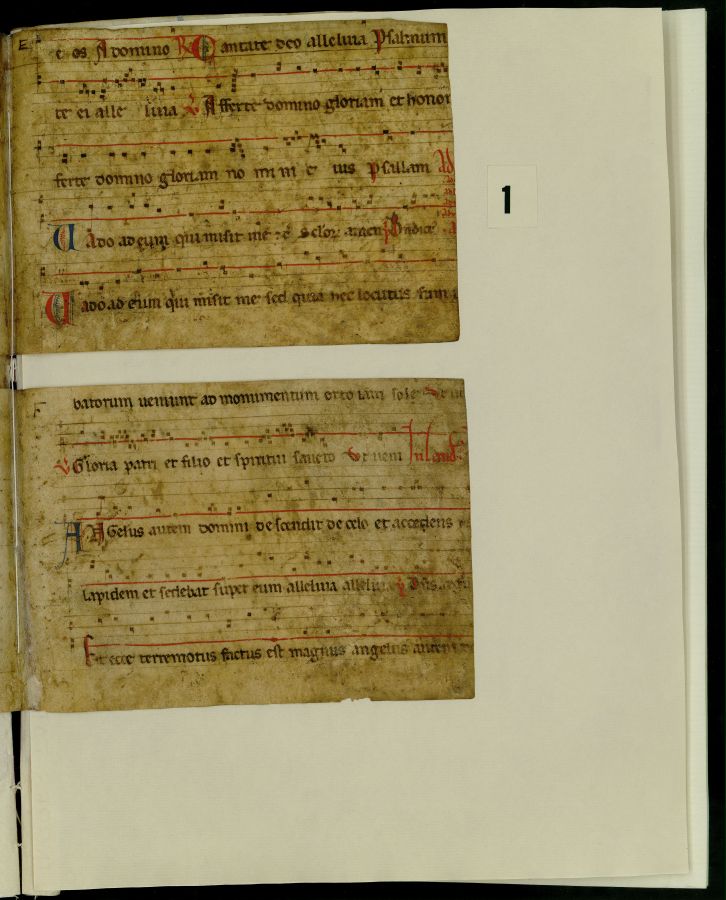 E
e os A domino R Cantate deo alleluia Psalmum
te ei alle luia V Afferte domino gloriam et honor
ferte domino gloriam no mi ni e ius Psallam Ad
Uado ad eum qui misit me
Uado ad eum qui misit me sed quia hec locutus sum
1
batorum ueniunt ad monumentum orto iam sole
V Gloria patri et filio et spiritui sancto Vt ueni In laud
ANgelus autem domini descendit de celo et accedens
lapidem et sedebat super eum alleluia alleluia
Et ecce terremotus factus est magnus angelus autem